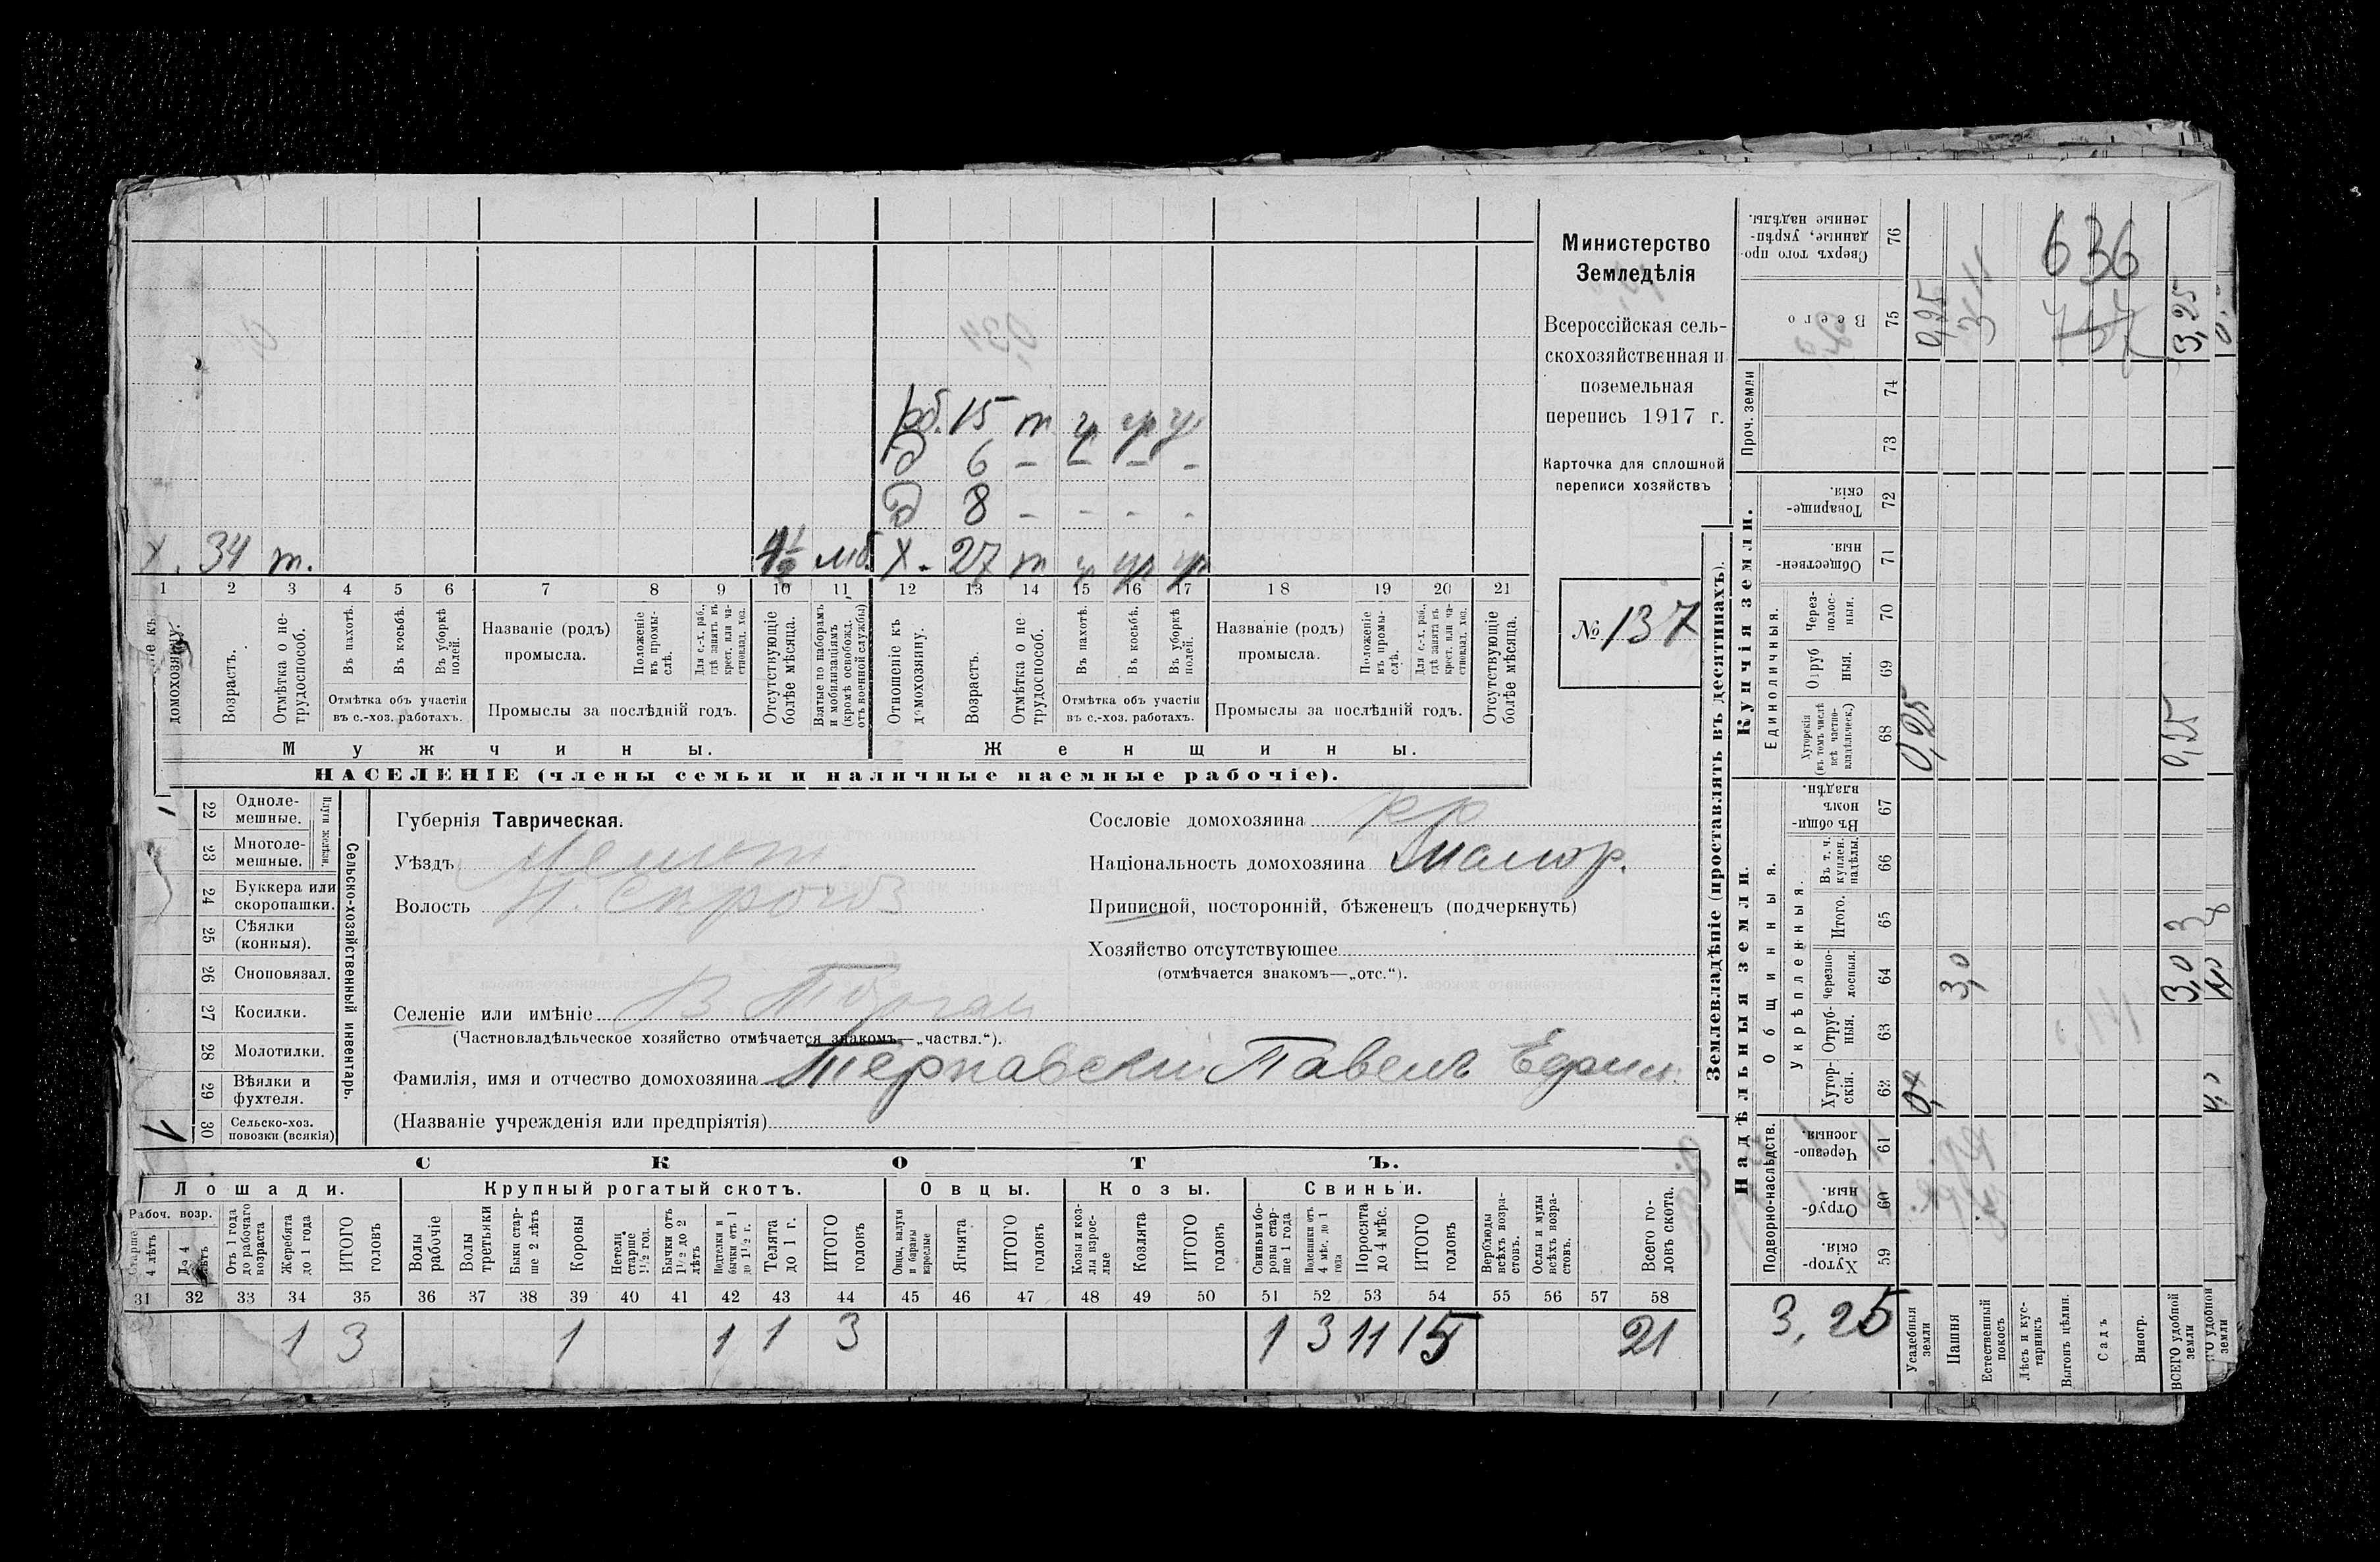 Министерство
Земледѣлія
Всероссійская сель-
скохозяйственная и
поземельная
перепись 1917 г.
Карточка для сплошной
переписи хозяйствъ
№ 137
рб. 15 т ур ур ур
д 6 – – – –
д 8 – – – –
х. 34 т. 1½ мб. х. 27 т ур ур ур
1 2 3 4 5 6 7 8 9 10 11 12 13 14 15 16 17 18 19 20 21
домохозяину.
Возрастъ.
Отмѣтка о не-
трудоспособ.
Въ пахотѣ.
Въ косьбѣ.
Въ уборкѣ
полей.
Отмѣтка объ участіи
въ с.-хоз. работахъ.
Названіе (родъ)
промысла.
Положеніе
въ промы-
слѣ.
Для с.-х. раб.,
гдѣ занятъ въ
крест. или ча-
стновлад. хоз.
Промыслы за послѣдній годъ.
Отсутствующіе
болѣе мѣсяца.
Взятые по наборамъ
и мобилизаціямъ
(кромѣ освобожд.
отъ военной службы)
Отношеніе къ
домохозяину.
Возрастъ.
Отмѣтка о не-
трудоспособ.
Въ пахотѣ.
Въ косьбѣ.
Въ уборкѣ
полей.
Отмѣтка объ участіи
въ с.-хоз. работахъ.
Названіе (родъ)
промысла.
Положеніе
въ промы-
слѣ.
Для с.-х. раб.,
гдѣ занята въ
крест. или ча-
стновлад. хоз.
Промыслы за послѣдній годъ.
Отсутствующіе
болѣе мѣсяца.
Мужчины.
Женщины.
НАСЕЛЕНІЕ (члены семьи и наличные наемные рабочіе).
22 Одноле-
мешные.
23 Многоле-
мешные.
Плуги желѣзн.
24 Буккера или
скоропашки.
25 Сѣялки
(конныя).
26 Сноповязал.
27 Косилки.
28 Молотилки.
29 Вѣялки и
фухтеля.
30 Сельско-хоз.
повозки (всякія)
1
Сельско-хозяйственный инвентарь.
Губернія Таврическая.
Уѣздъ Мелит.
Волость Н. Сѣрогоз
Селеніе или имѣніе В. Торгаи
(Частновладѣльческое хозяйство отмѣчается знакомъ—„частвл.“).
Фамилія, имя и отчество домохозяина Тернавски Павелъ
(Названіе учрежденія или предпріятія)
Сословіе домохозяина кр
Національность домохозяина малор.
Приписной, посторонній, бѣженецъ (подчеркнуть)
Хозяйство отсутствующее
(отмѣчается знакомъ—„отс.“).
СКОТЪ.
Лошади.
Крупный рогатый скотъ.
Овцы.
Козы.
Свиньи.
Рабоч. возр.
Старше
4 лѣтъ
До 4
лѣтъ
Отъ 1 года
до рабочаго
возраста
Жеребята
до 1 года
ИТОГО
головъ
Волы
рабочіе
Волы
третьяки
Быки стар-
ше 2 лѣтъ
Коровы
Нетели
старше
1½ год.
Бычки отъ
1½ до 2
лѣтъ
Подтелки и
бычки отъ 1
до 1½ г.
Телята
до 1 г.
ИТОГО
головъ
Овцы, валухи
и бараны
взрослые
Ягнята
ИТОГО
головъ
Козы и коз-
лы взрос-
лые
Козлята
ИТОГО
головъ
Свиньи и бо-
ровы стар-
ше 1 года
Подсвинки отъ
4 мѣс. до 1
года
Поросята
до 4 мѣс.
ИТОГО
головъ
Верблюды
всѣхъ возра-
стовъ.
Ослы и мулы
всѣхъ возра-
стовъ.
Всего го-
ловъ скота.
31 32 33 34 35 36 37 38 39 40 41 42 43 44 45 46 47 48 49 50 51 52 53 54 55 56 57 58
1 3 1 1 1 3 1 3 11 15 21
Землевладѣніе (проставлять въ десятинахъ).
Надѣльныя земли.
Купчія земли.
Проч. земли
Подворно-наслѣдств.
Общинныя.
Укрѣпленныя.
Единоличныя.
Хутор-
скія. 59
Отруб-
ныя. 60
Черезпо-
лосныя. 61
Хутор-
скія. 62
Отруб-
ныя. 63
Черезпо-
лосныя. 64
Итого. 65
Въ т. ч.
куплен.
надѣлы 66
Въ общин-
номъ
владѣн. 67
Хуторскія
(въ томъ числѣ
всѣ частно-
владѣльческ.) 68
Отруб
ныя. 69
Через-
полос-
ныя. 70
Обществен-
ныя. 71
Товарище-
скія. 72
73
74
Всего 75
Сверхъ того про-
данные, укрѣп-
ленные надѣлы. 76
3,25
Усадебныя
земли
0,25
0,25
Пашня
3,0
3,11
Естественный
покосъ
Лѣсъ и кус-
тарникъ
Выгонъ цѣлин.
Садъ
Виногр.
636
757
ВСЕГО удобной
земли
3,03
0,25
3,25
удобной
земли